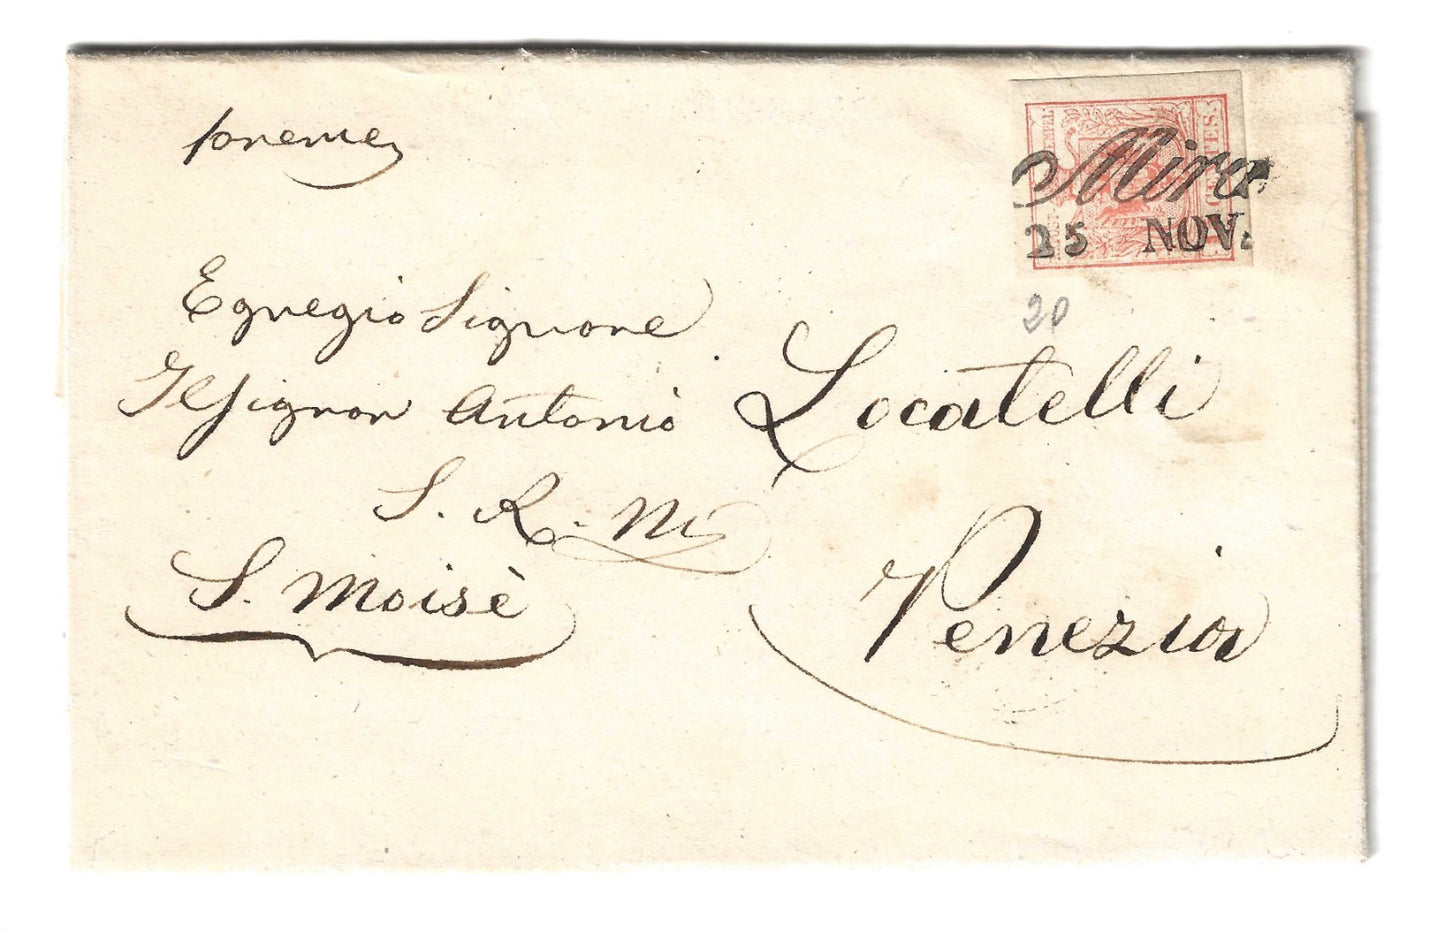 preme
Mira
25 NOV.
20
Egregio Signore
Il Signor Antonio Locatelli
S. R. M.
S. Moisè
Venezia